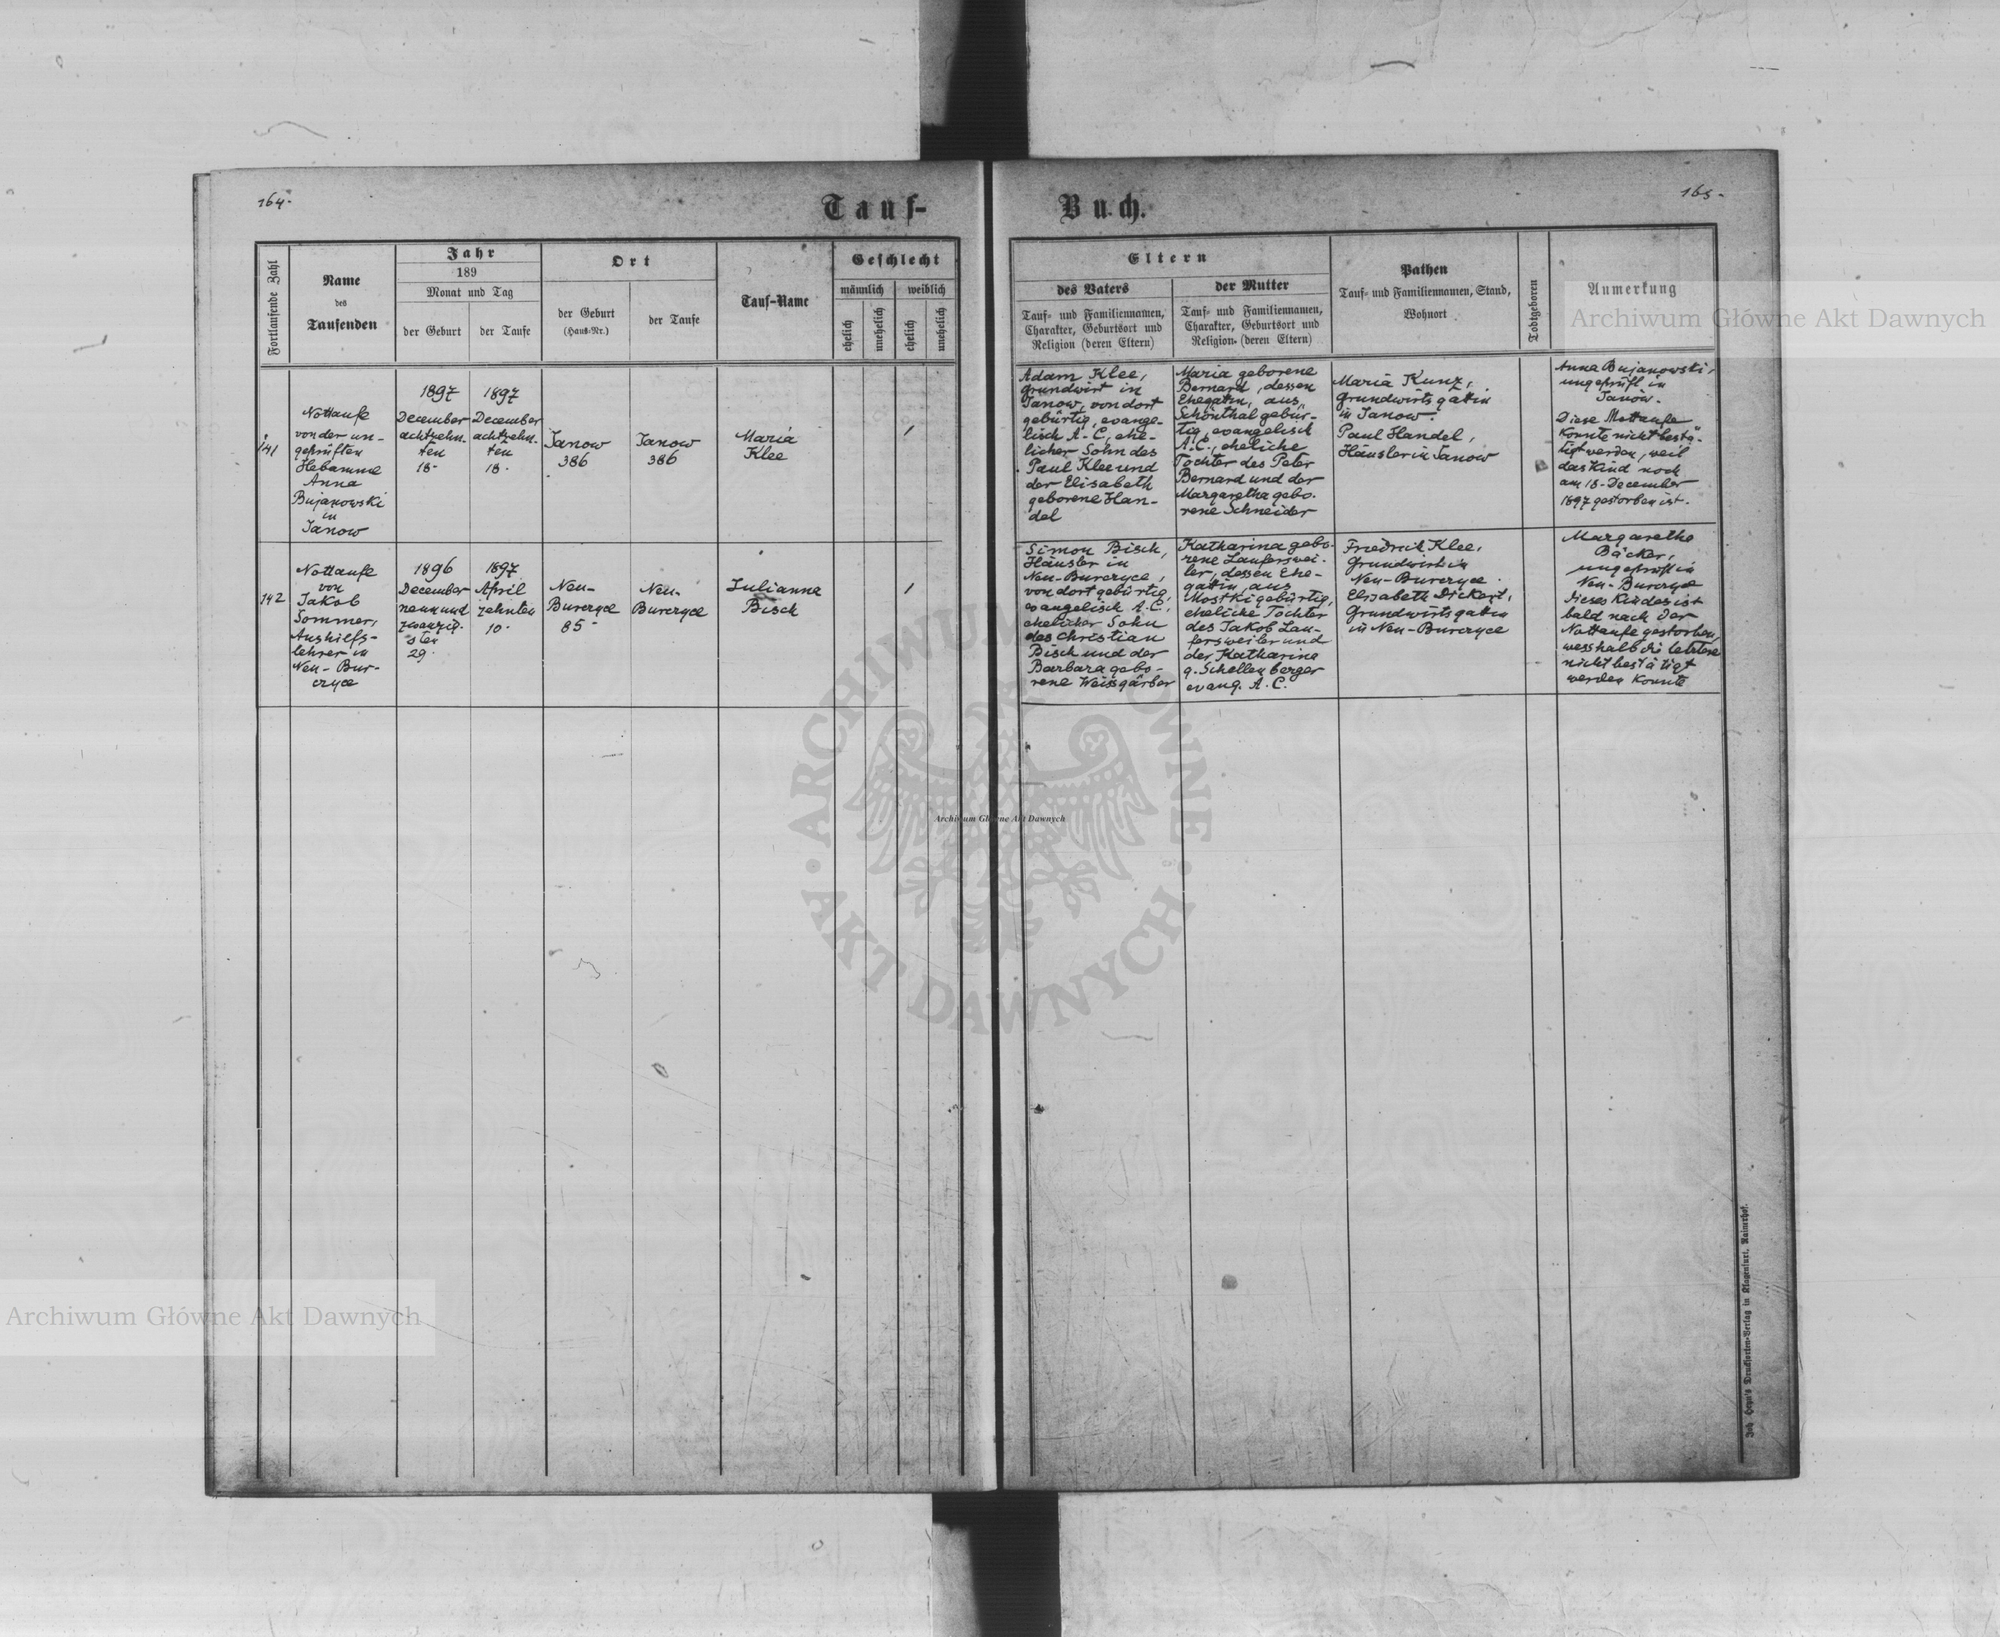 164.
Tauf-
Buch.
165.
Fortlaufende Zahl
Name
des
Taufenden
Jahr
189
Monat und Tag
der Geburt
der Taufe
Ort
der Geburt
(Haus-Nr.)
der Taufe
Tauf-Name
Geschlecht
männlich
weiblich
ehelich
unehelich
ehelich
unehelich
Eltern
des Vaters
Tauf- und Familiennamen,
Charakter, Geburtsort und
Religion (deren Eltern)
der Mutter
Tauf- und Familiennamen,
Charakter, Geburtsort und
Religion (deren Eltern)
Pathen
Tauf- und Familiennamen, Stand,
Wohnort
Todtgeboren
Anmerkung
141
Nottaufe
von der un-
geprüften
Hebamme
Anna
Bujanowski
in
Janow
1897
December
achtzehn-
ten
18.
1897
December
achtzehn-
ten
18.
Janow
386
Janow
386
Maria
Klee
1
Adam Klee,
Grundwirt in
Janow, von dort
gebürtig, evange-
lisch A. C., ehe-
licher Sohn des
Paul Klee und
der Elisabeth
geborene Han-
del
Maria geborene
Bernard, dessen
Ehegatin, aus
Schönthal gebür-
tig, evangelisch
A. C., eheliche
Tochter des Peter
Bernard und der
Margaretha gebo-
rene Schneider
Maria Kunz,
Grundwirtsgatin
in Janow.
Paul Handel,
Häusler in Janow
Anna Bujanowski,
ungeprüft in
Janow.
Diese Nottaufe
konnte nicht bestä-
tigt werden, weil
das Kind noch
am 18. December
1897 gestorben ist.
142
Nottaufe
von
Jakob
Sommer,
Aushilfs-
lehrer in
Neu-Bur-
czyce
1896
December
neunund
zwanzig-
ster
29.
1897
April
zehnten
10.
Neu-
Burczyce
85
Neu-
Burczyce
Julianna
Bisch
1
Simon Bisch,
Häusler in
Neu-Burczyce,
von dort gebürtig,
evangelisch A. C.,
ehelicher Sohn
des Christian
Bisch und der
Barbara gebo-
rene Weissgärber
Katharina gebo-
rene Laufferswei-
ler, dessen Ehe-
gatin, aus
Mostki gebürtig,
eheliche Tochter
des Jakob Lau-
fersweiler und
der Katharina
g. Schellenberger
evang. A. C.
Friedrich Klee,
Grundwirt in
Neu-Burczyce.
Elisabeth Dickert,
Grundwirtsgatin
in Neu-Burczyce
Margaretha
Bäcker,
ungeprüft in
Neu-Burczyce
Dieses Kindes ist
bald nach der
Nottaufe gestorben,
wesshalb die letztere
nicht bestätigt
werden konnte
Joh. Heyn's Drucksorten-Verlag in Klagenfurt, Rainerhof.
Archiwum Główne Akt Dawnych
Archiwum Główne Akt Dawnych
Archiwum Główne Akt Dawnych
ARCHIWUM GŁÓWNE
AKT DAWNYCH